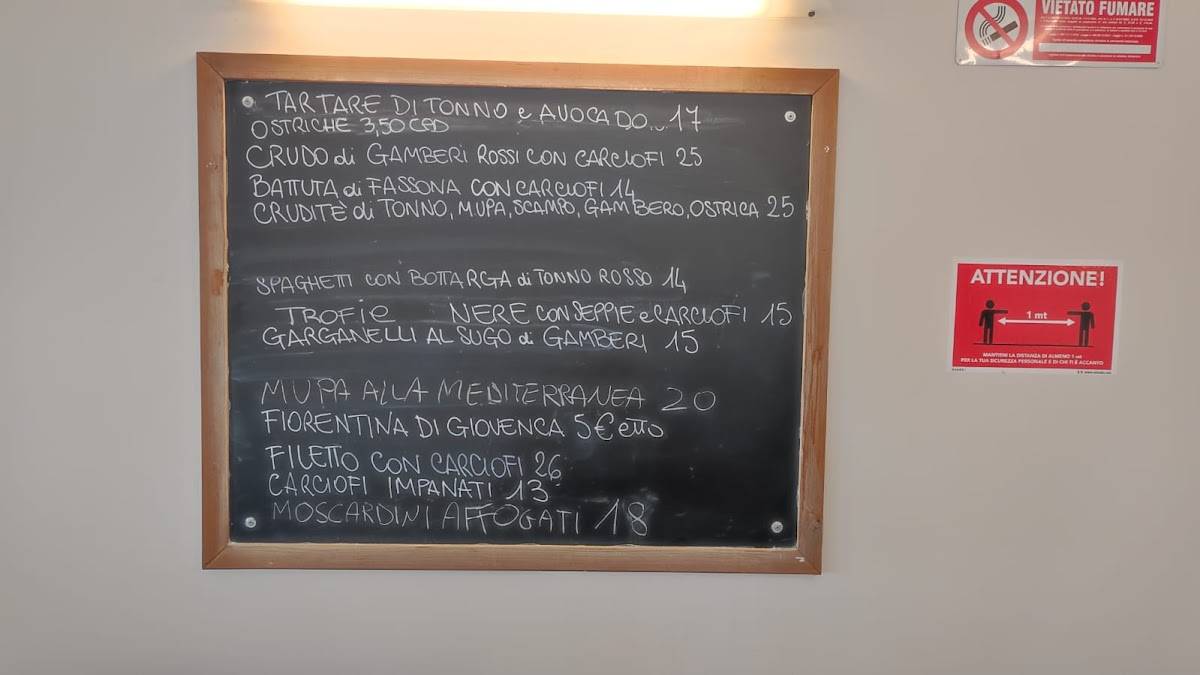 TARTARE DI TONNO e AVOCADO... 17
OSTRICHE 3,50 CAD
CRUDO di GAMBERI ROSSI CON CARCIOFI 25
BATTUTA di FASSONA CON CARCIOFI 14
CRUDITÈ di TONNO, MUPA, SCAMPO, GAMBERO, OSTRICA 25
SPAGHETTI CON BOTTARGA di TONNO ROSSO 14
TROFIE NERE CON SEPPIE e CARCIOFI 15
GARGANELLI AL SUGO di GAMBERI 15
MUPA ALLA MEDITERRANEA 20
FIORENTINA DI GIOVENCA 5€ etto
FILETTO CON CARCIOFI 26
CARCIOFI IMPANATI 13
MOSCARDINI AFFOGATI 18
VIETATO FUMARE
ATTENZIONE!
1 mt
MANTIENI LA DISTANZA DI ALMENO 1 mt
PER LA TUA SICUREZZA PERSONALE E DI CHI TI È ACCANTO